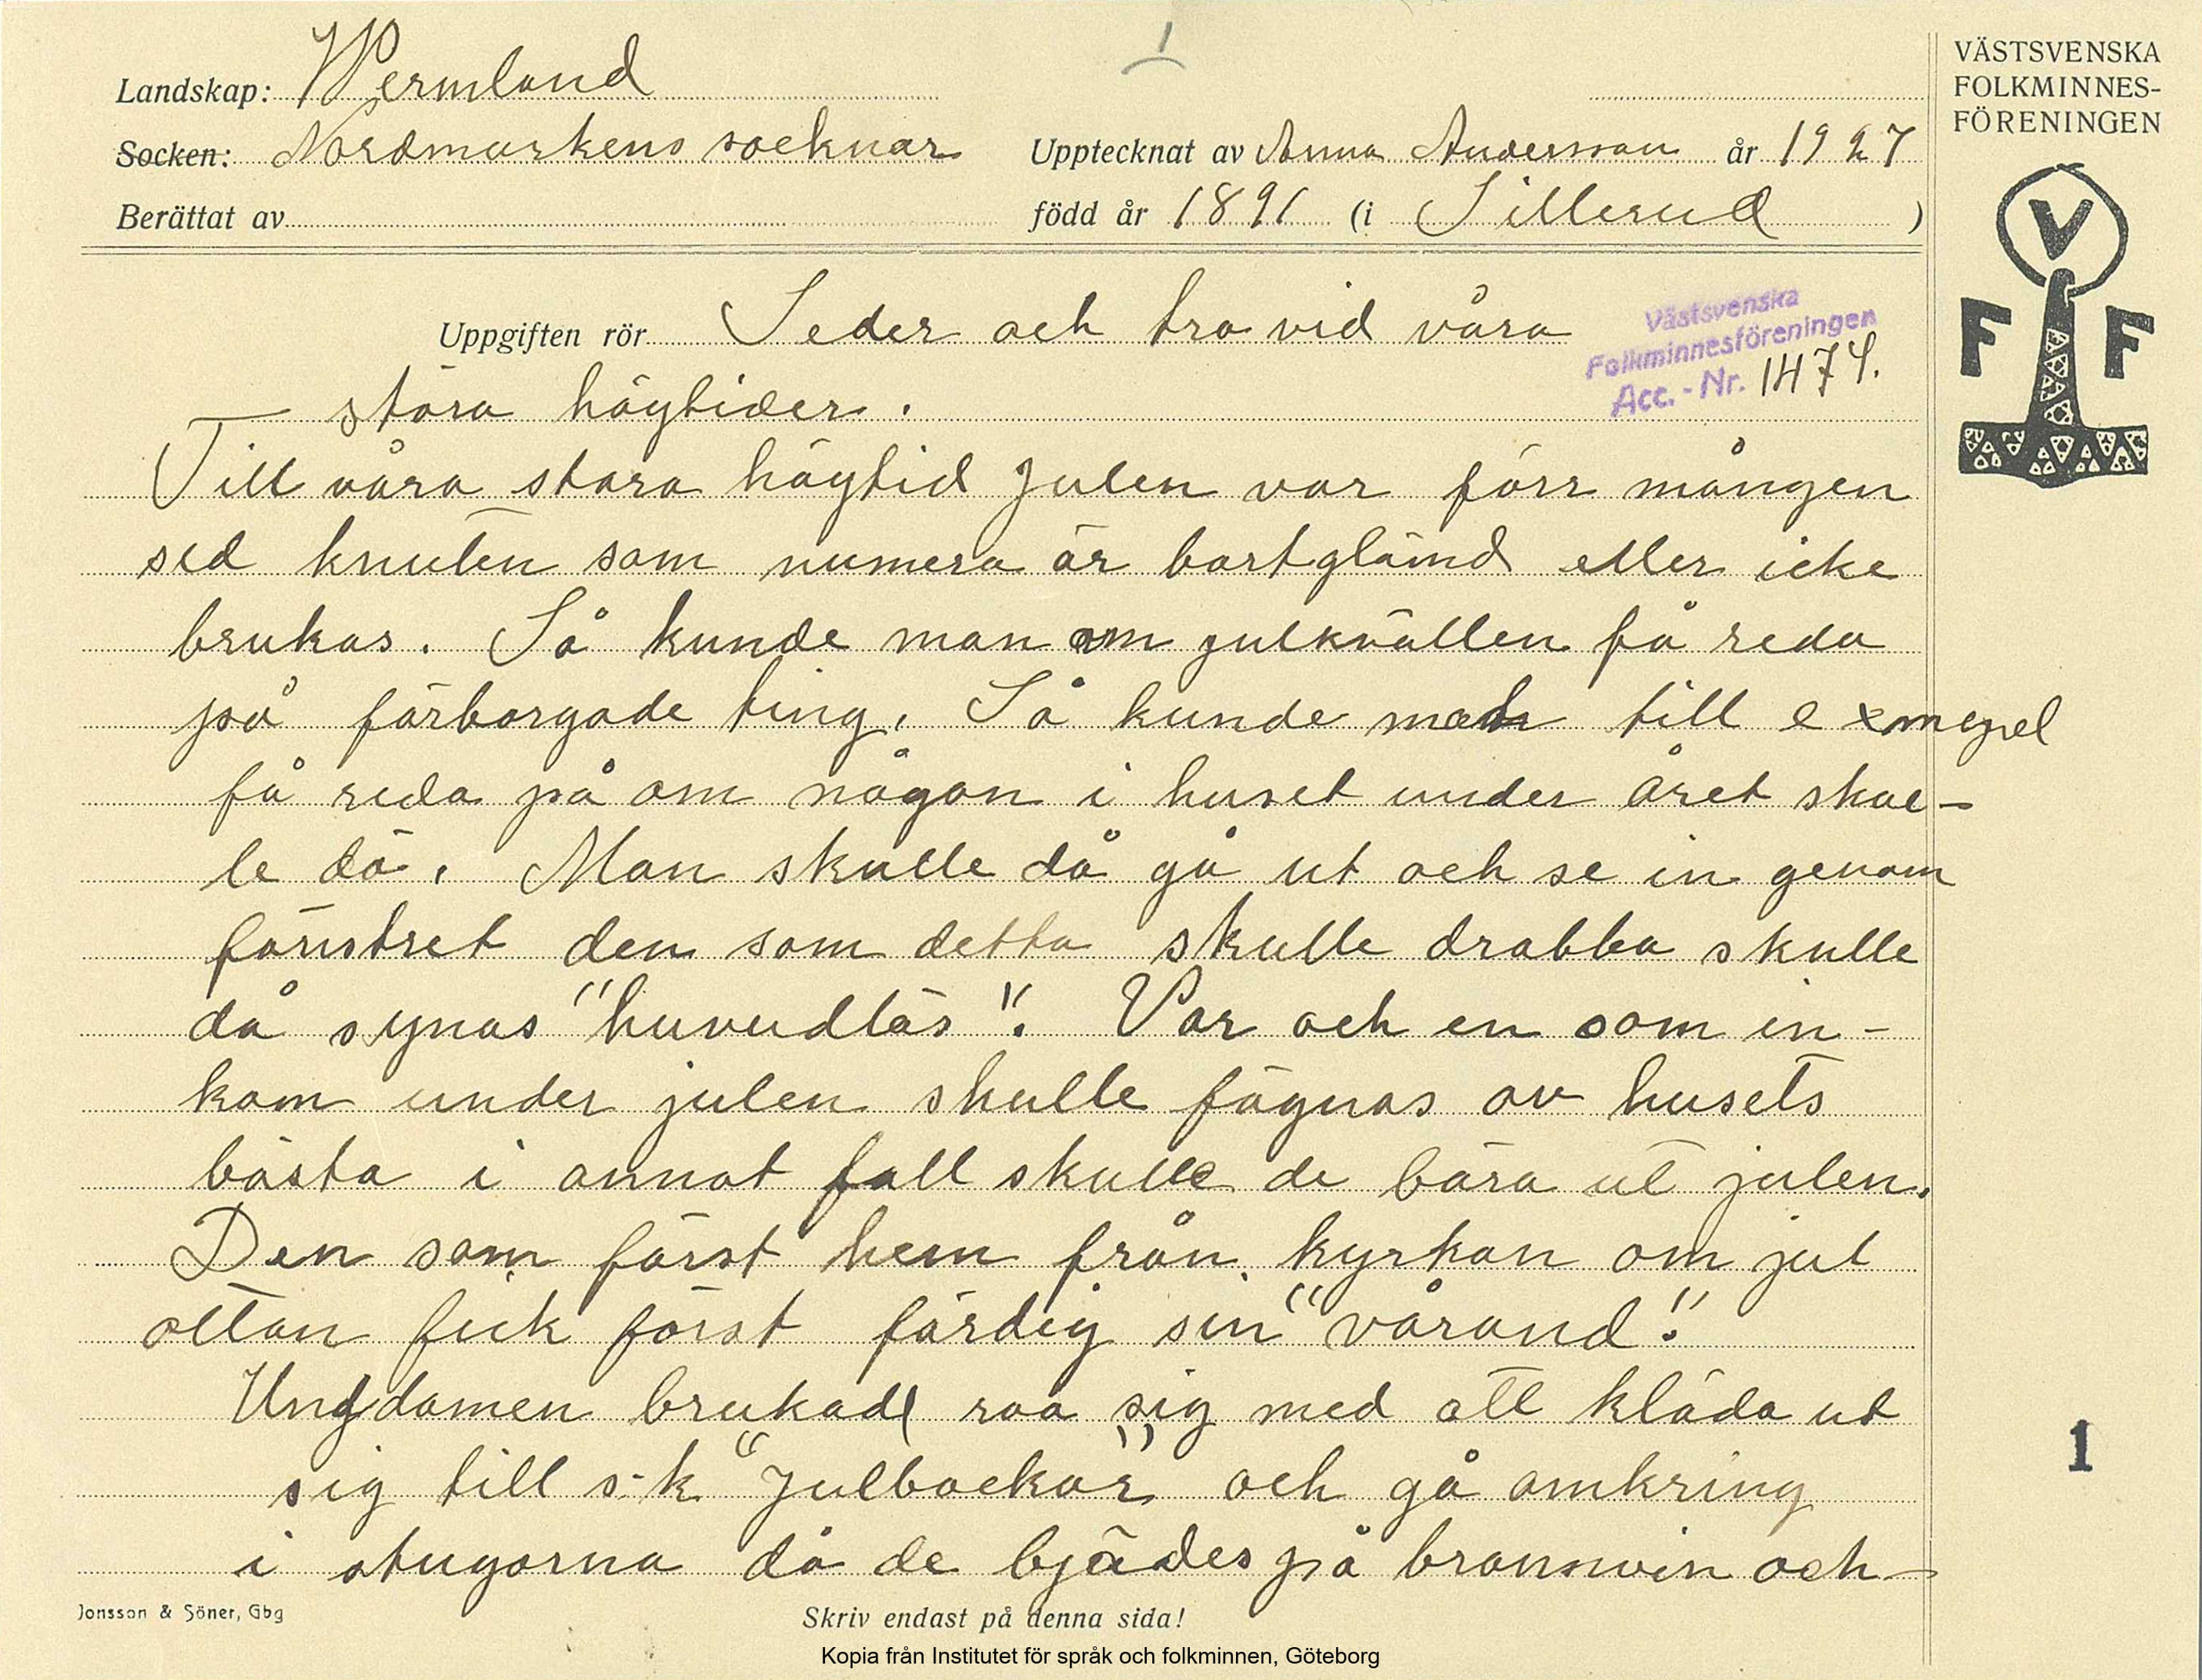 Landskap: Wermland
VÄSTSVENSKA
FOLKMINNES-
FÖRENINGEN
Socken: Nordmarkens socknar
Upptecknat av Anna Andersson år 1927
Berättat av
född år 1891 (i Sillerud )
V
F F
Uppgiften rör Seder och tro vid våra
stora högtider.
Västsvenska
Folkminnesföreningen
Acc. - Nr. 1474.
Till våra stora högtid Julen var förr mången
sed knuten som numera är bortglömd eller icke
brukas. Så kunde man om julkvällen få reda
på förborgade ting. Så kunde man till exmepel
få reda på om någon i huset under året skul-
le dö. Man skulle då gå ut och se in genom
fönstret den som detta skulle drabba skulle
då synas "huvudlös". Var och en som in-
kom under julen skulle fägnas av husets
bästa i annat fall skulle de bära ut julen.
Den som först hem från kyrkan om jul
ottan fick först färdig sin "vårand".
Ungdomen brukade roa sig med att kläda ut
sig till s.k. "Julbockar" och gå omkring
i stugorna då de bjödes på brännvin och
1
Jonsson & Söner, Gbg
Skriv endast på denna sida!
Kopia från Institutet för språk och folkminnen, Göteborg